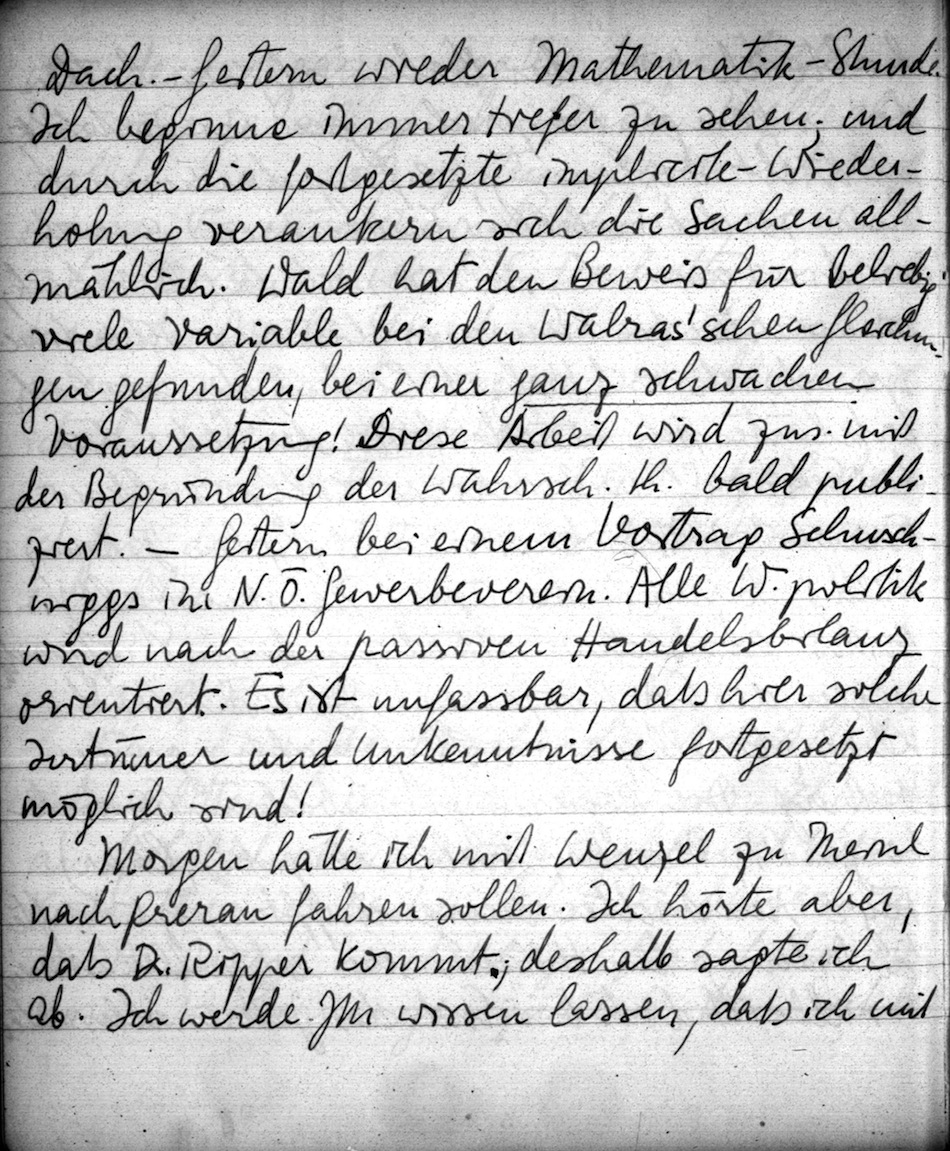 Dach. – Gestern wieder Mathematik-Stunde.
Ich beginne immer tiefer zu sehen; und
durch die fortgesetzte implicite-Wieder-
holung verankern sich die Sachen all-
mählich. Wald hat den Beweis für beliebig
viele Variable bei den Walras'schen Gleichun-
gen gefunden, bei einer ganz schwachen
Voraussetzung! Diese Arbeit wird zus. mit
der Begründung der Wahrsch. th. bald publi-
ziert. – Gestern bei einem Vortrag Schusch-
niggs im N. Ö. Gewerbeverein. Alle W. politik
wird nach der passiven Handelsbilanz
orientiert. Es ist unfassbar, daß hier solche
Irrtümer und Unkenntnisse fortgesetzt
möglich sind!
Morgen hätte ich mit Wenzel zu
nach Prerau fahren sollen. Ich hörte aber,
daß Dr. Ripper kommt; deshalb sagte ich
ab. Ich werde Ihn wissen lassen, daß ich mit